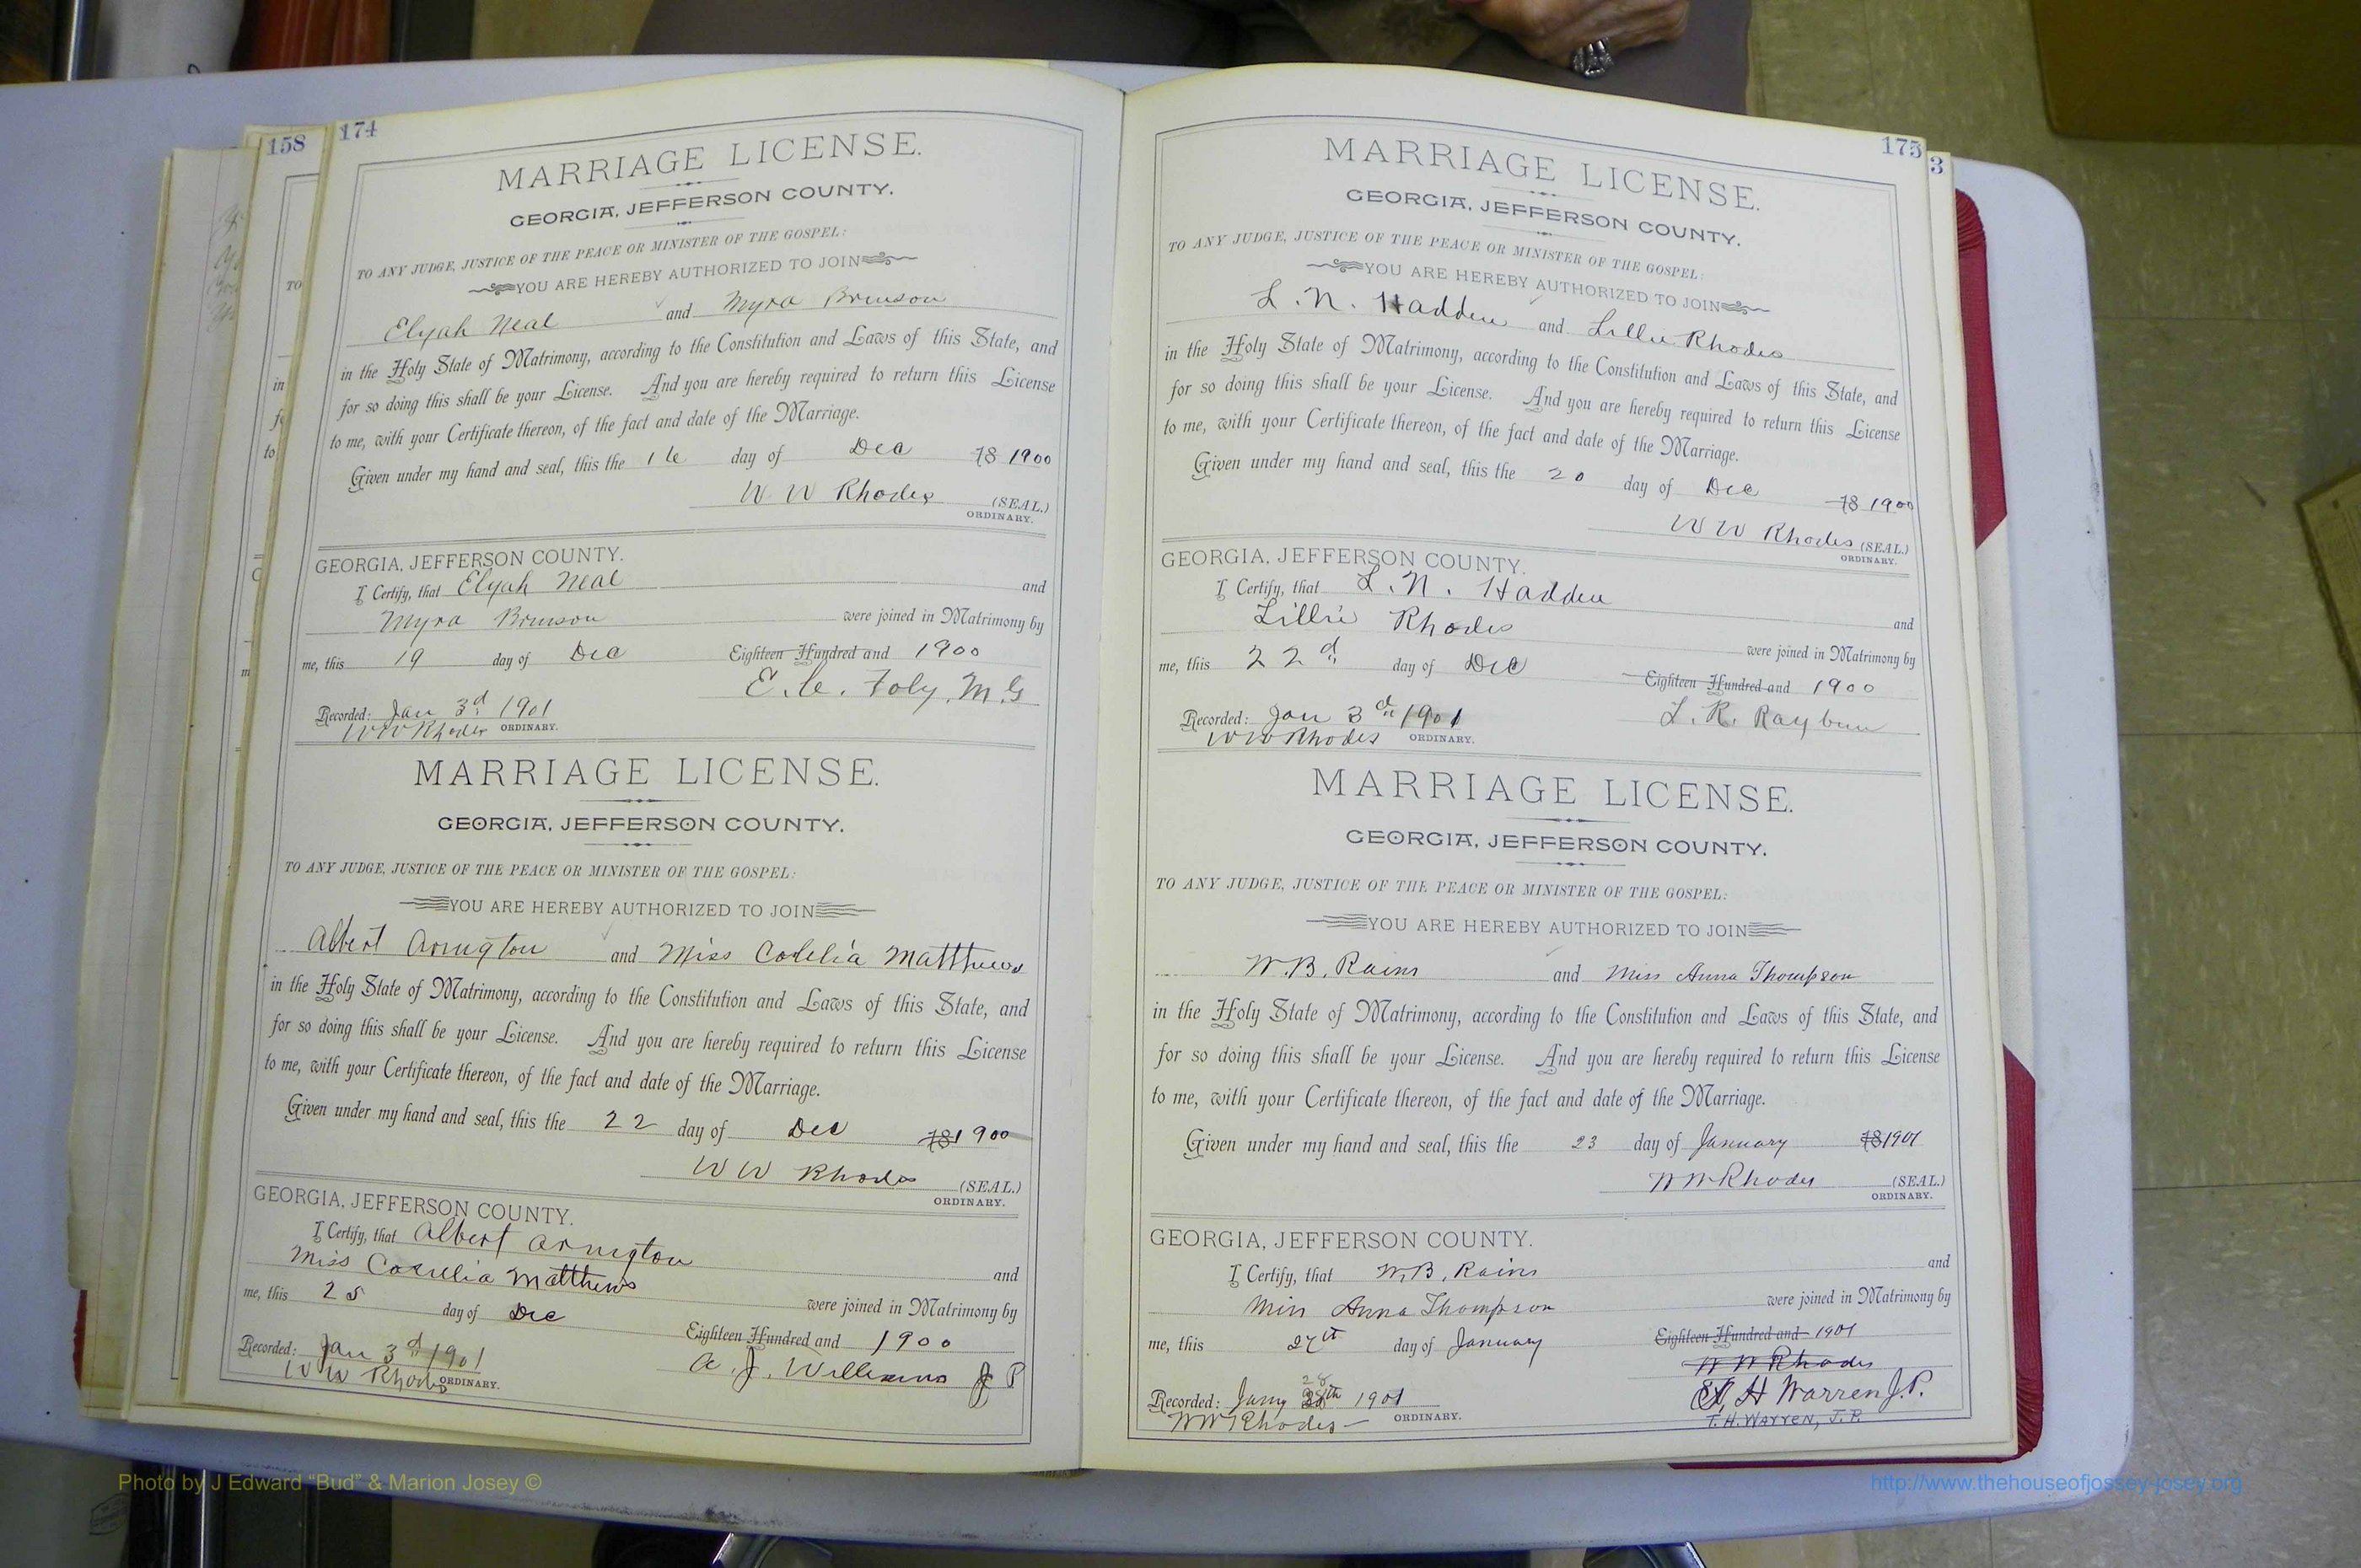 158
174
MARRIAGE LICENSE.
GEORGIA, JEFFERSON COUNTY.
TO ANY JUDGE, JUSTICE OF THE PEACE OR MINISTER OF THE GOSPEL:
YOU ARE HEREBY AUTHORIZED TO JOIN
Elijah Neal and Myra Brinson
in the Holy State of Matrimony, according to the Constitution and Laws of this State, and
for so doing this shall be your License. And you are hereby required to return this License
to me, with your Certificate thereon, of the fact and date of the Marriage.
Given under my hand and seal, this the 16 day of Dec 18 1900
W W Rhodes (SEAL.)
ORDINARY.
GEORGIA, JEFFERSON COUNTY.
I Certify, that Elijah Neal and
Myra Brinson were joined in Matrimony by
me, this 19 day of Dec Eighteen Hundred and 1900
E. C. Foly, M.G
Recorded: Jan 3d 1901
W W Rhodes ORDINARY.
MARRIAGE LICENSE.
GEORGIA, JEFFERSON COUNTY.
TO ANY JUDGE, JUSTICE OF THE PEACE OR MINISTER OF THE GOSPEL:
YOU ARE HEREBY AUTHORIZED TO JOIN
Albert Arington and Miss Matthews
in the Holy State of Matrimony, according to the Constitution and Laws of this State, and
for so doing this shall be your License. And you are hereby required to return this License
to me, with your Certificate thereon, of the fact and date of the Marriage.
Given under my hand and seal, this the 22 day of Dec 18 1900
W W Rhodes (SEAL.)
ORDINARY.
GEORGIA, JEFFERSON COUNTY.
I Certify, that Albert Arington and
Miss Matthews were joined in Matrimony by
me, this 25 day of Dec Eighteen Hundred and 1900
A. J. Williams J P
Recorded: Jan 3d 1901
W W Rhodes ORDINARY.
175
3
MARRIAGE LICENSE.
GEORGIA, JEFFERSON COUNTY.
TO ANY JUDGE, JUSTICE OF THE PEACE OR MINISTER OF THE GOSPEL:
YOU ARE HEREBY AUTHORIZED TO JOIN
L. N. Hadden and Lillie Rhodes
in the Holy State of Matrimony, according to the Constitution and Laws of this State, and
for so doing this shall be your License. And you are hereby required to return this License
to me, with your Certificate thereon, of the fact and date of the Marriage.
Given under my hand and seal, this the 20 day of Dec 18 1900
W W Rhodes (SEAL.)
ORDINARY.
GEORGIA, JEFFERSON COUNTY.
I Certify, that L. N. Hadden and
Lillie Rhodes were joined in Matrimony by
me, this 22d day of Dec Eighteen Hundred and 1900
L. R. Rayburn
Recorded: Jan 3d 1901
W W Rhodes ORDINARY.
MARRIAGE LICENSE.
GEORGIA, JEFFERSON COUNTY.
TO ANY JUDGE, JUSTICE OF THE PEACE OR MINISTER OF THE GOSPEL:
YOU ARE HEREBY AUTHORIZED TO JOIN
W. B. Rains and Miss Anna Thompson
in the Holy State of Matrimony, according to the Constitution and Laws of this State, and
for so doing this shall be your License. And you are hereby required to return this License
to me, with your Certificate thereon, of the fact and date of the Marriage.
Given under my hand and seal, this the 23 day of January 18 1901
W W Rhodes (SEAL.)
ORDINARY.
GEORGIA, JEFFERSON COUNTY.
I Certify, that W. B. Rains and
Miss Anna Thompson were joined in Matrimony by
me, this 27th day of January Eighteen Hundred and 1901
W W Rhodes
H Warren J. P.
T. H. WARREN, J. P.
Recorded: Jany 28 1901
W W Rhodes ORDINARY.
Photo by J Edward “Bud” & Marion Josey ©
http://www.thehouseofjossey-josey.org